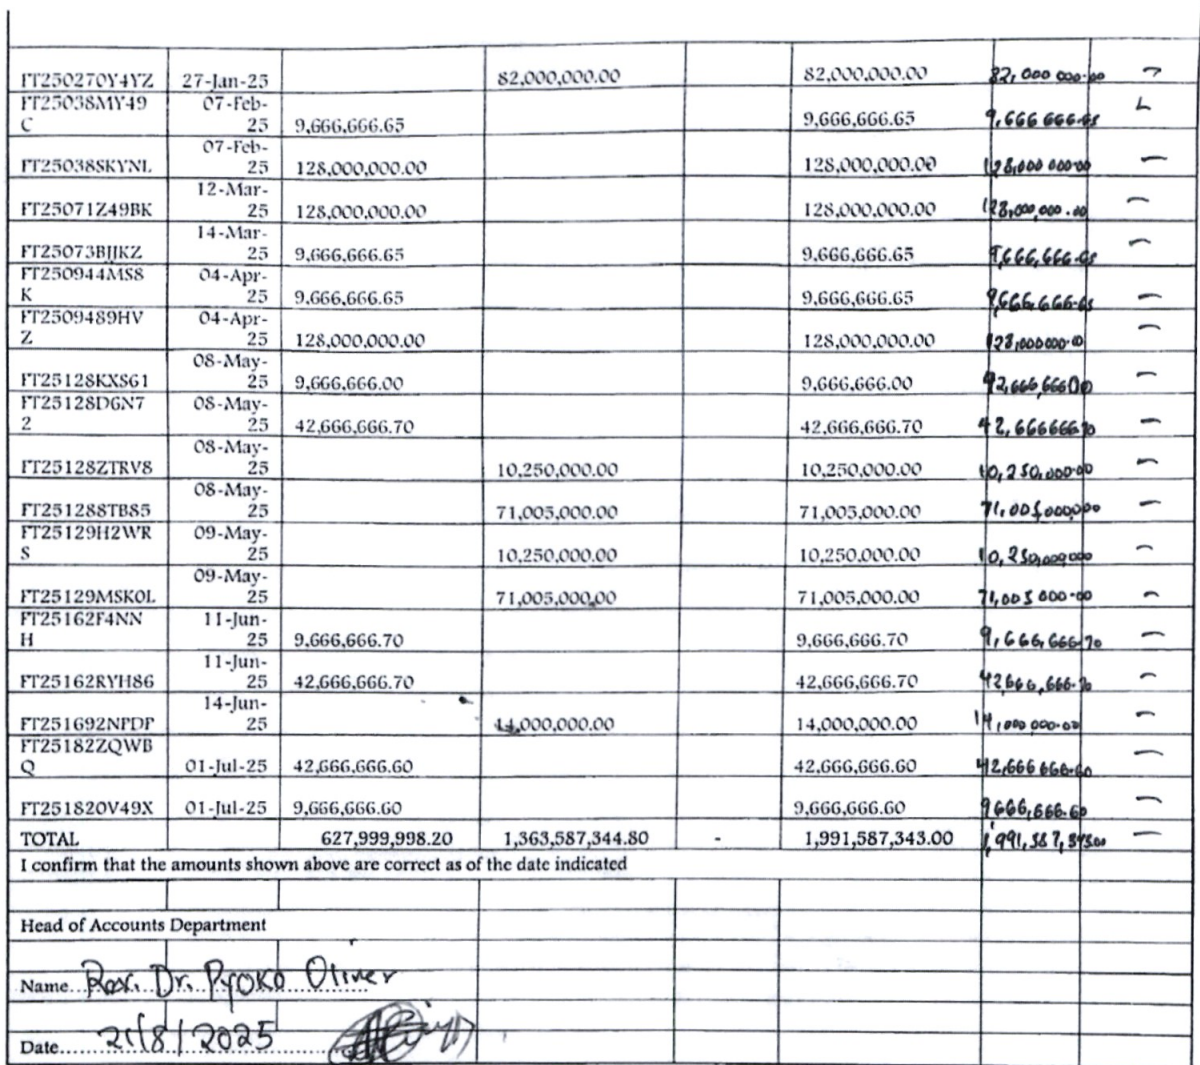 FT250270Y4YZ 27-Jan-25 82,000,000.00 82,000,000.00 82,000 000.00
FT25038MY49
C 07-Feb-
25 9,666,666.65 9,666,666.65 9,666 666.65
FT25038SKYNL 07-Feb-
25 128,000,000.00 128,000,000.00 128,000 000.00
FT25071Z49BK 12-Mar-
25 128,000,000.00 128,000,000.00 128,000,000.00
FT25073BJJKZ 14-Mar-
25 9,666,666.65 9,666,666.65 9,666,666.65
FT250944MS8
K 04-Apr-
25 9,666,666.65 9,666,666.65 9,666,666.65
FT2509489HV
Z 04-Apr-
25 128,000,000.00 128,000,000.00 128,000000.00
FT25128KXSG1 08-May-
25 9,666,666.00 9,666,666.00
FT25128DGN7
2 08-May-
25 42,666,666.70 42,666,666.70 42,666666.70
FT25128ZTRV8 08-May-
25 10,250,000.00 10,250,000.00 10,250,000.00
FT251288TB85 08-May-
25 71,005,000.00 71,005,000.00 71,005,000.00
FT25129H2WR
S 09-May-
25 10,250,000.00 10,250,000.00 10,250,000.00
FT25129MSK0L 09-May-
25 71,005,000.00 71,005,000.00 71,005 000.00
FT25162F4NN
H 11-Jun-
25 9,666,666.70 9,666,666.70 9,666,666.70
FT25162RYH86 11-Jun-
25 42,666,666.70 42,666,666.70 42,666,666.70
FT251692NPDP 14-Jun-
25 14,000,000.00 14,000,000.00 14,000 000.00
FT25182ZQWB
Q 01-Jul-25 42,666,666.60 42,666,666.60 42,666 666.60
FT251820V49X 01-Jul-25 9,666,666.60 9,666,666.60 9,666,666.60
TOTAL 627,999,998.20 1,363,587,344.80 - 1,991,587,343.00 1,991,587,343.00
I confirm that the amounts shown above are correct as of the date indicated
Head of Accounts Department
Name Rev. Dr. Pyoko Oliver
Date 21/8/2025